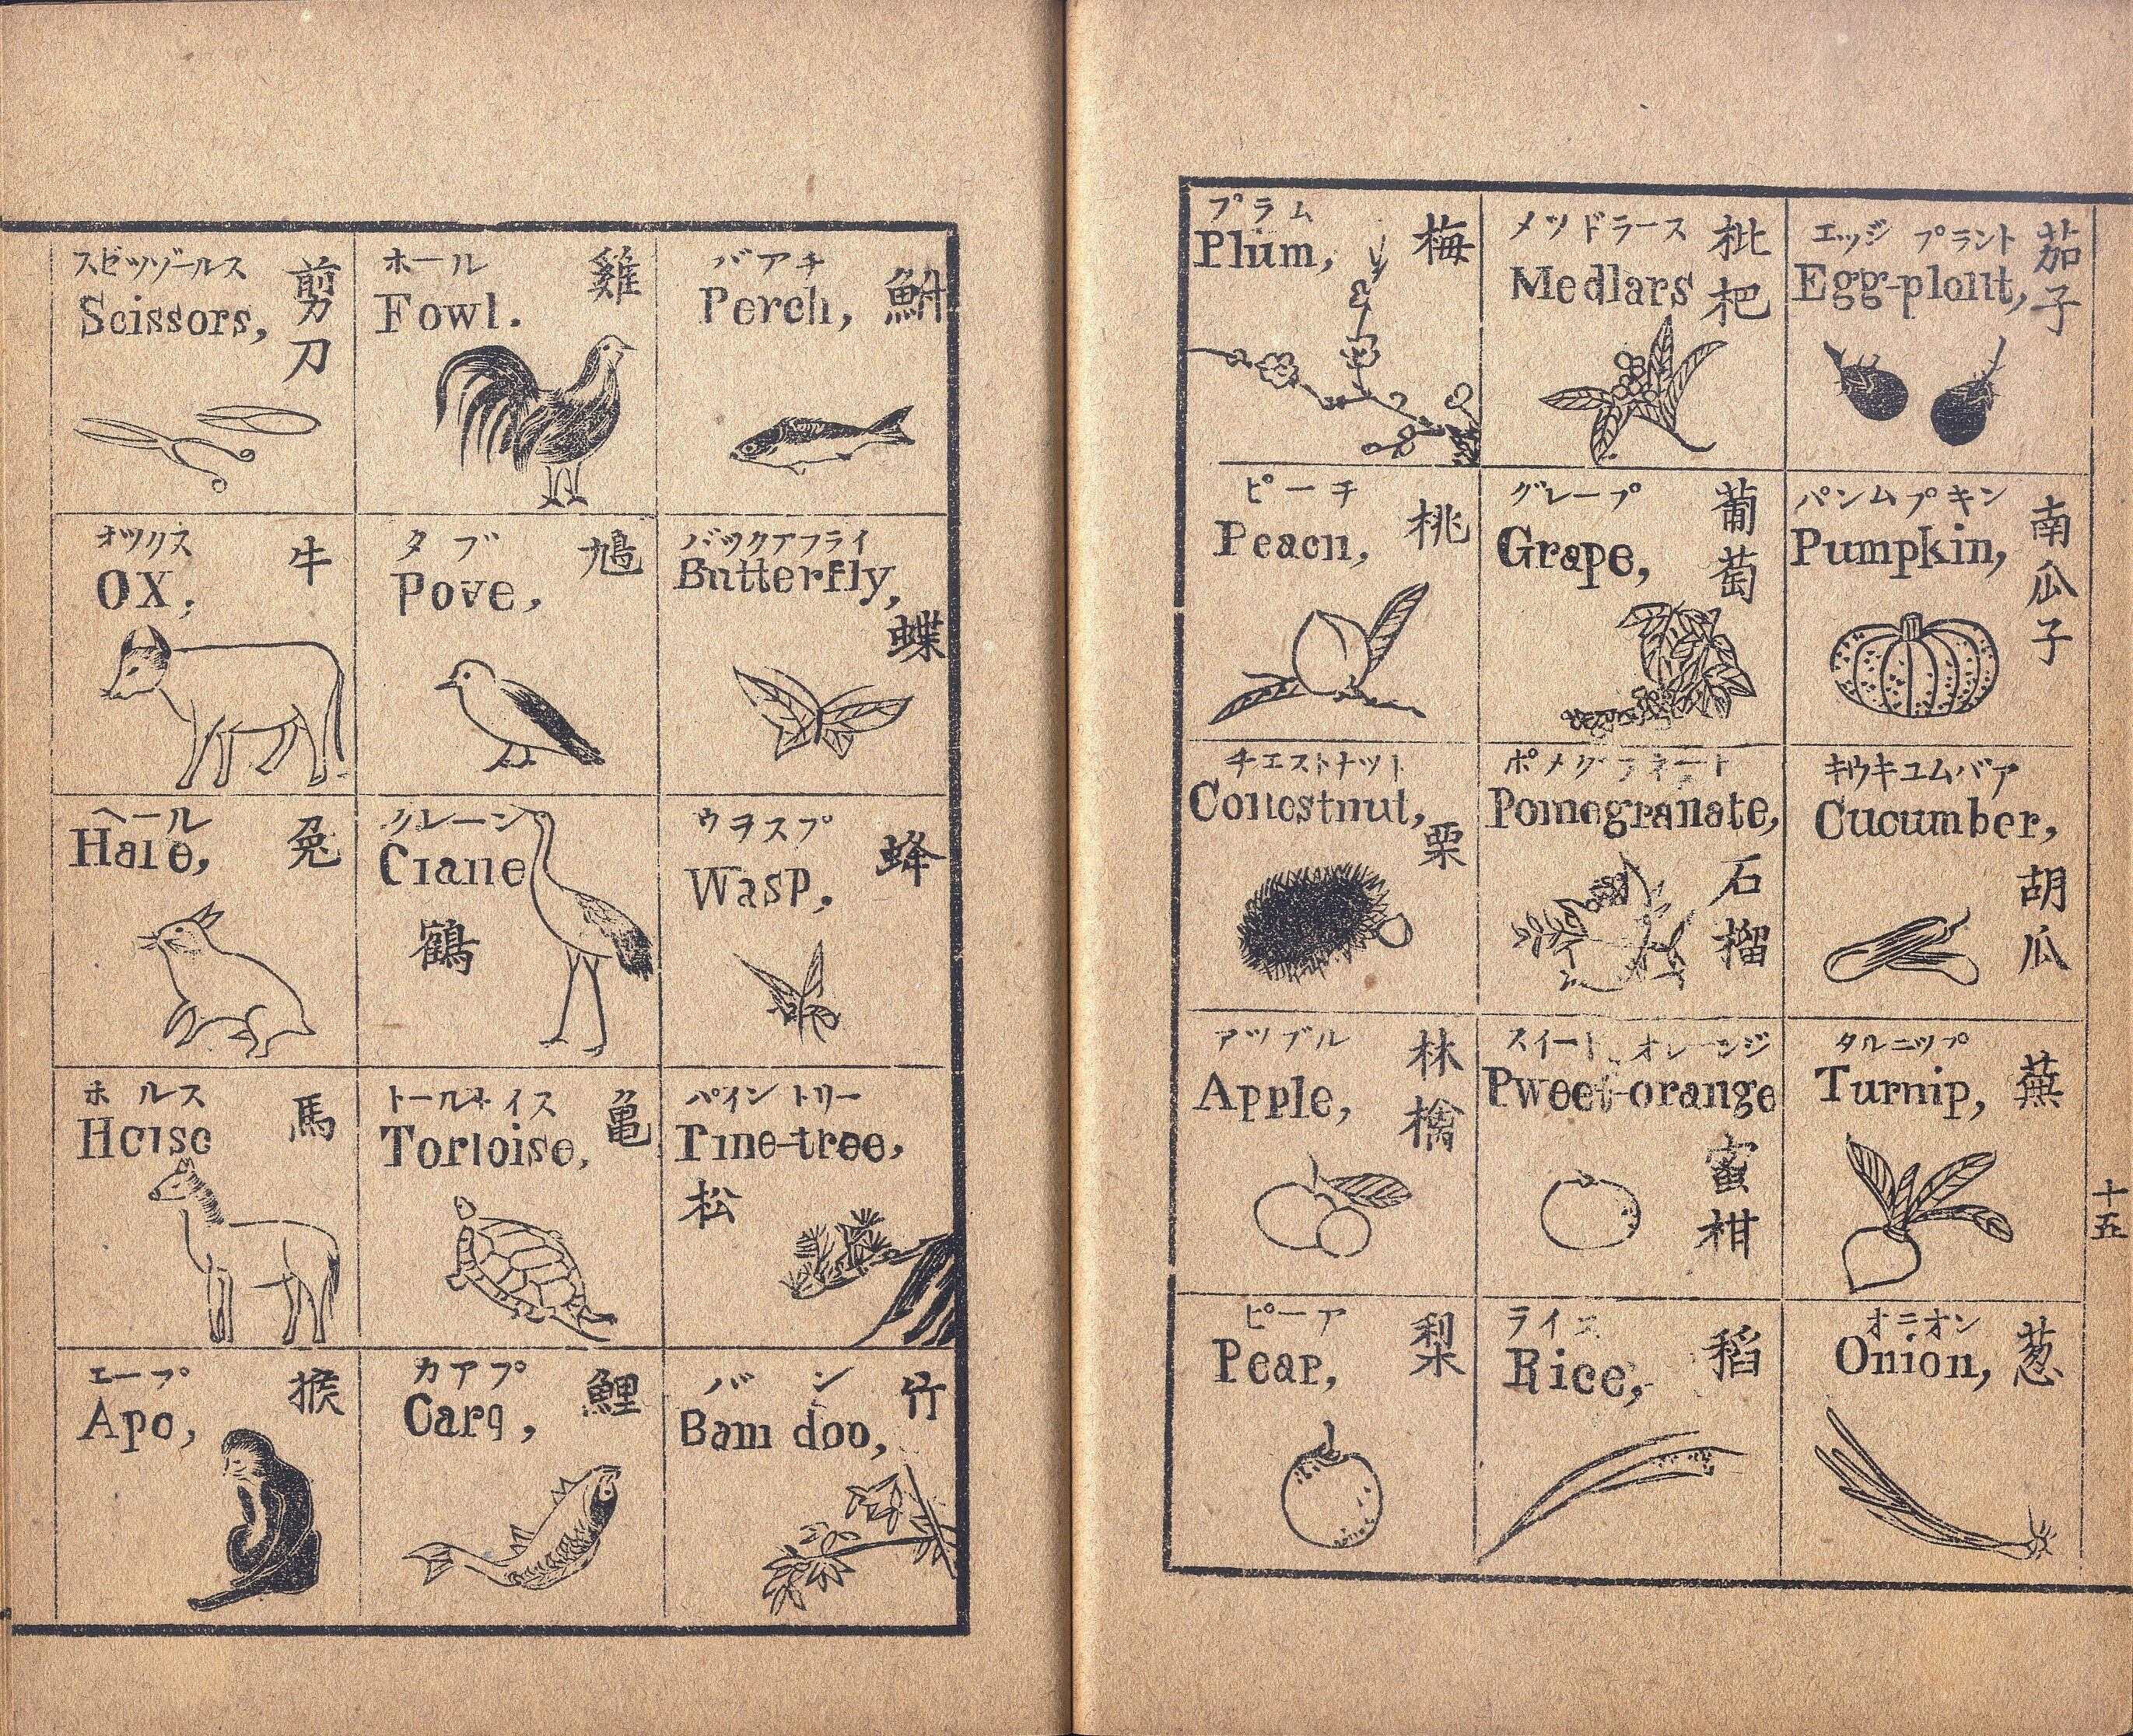 エッジ プラント
茄子
Egg-plollt,
パンムプキン
南瓜子
Pumpkin,
キウキユムバア
Cucumber,
胡瓜
タルニツプ
蕪
Turnip,
オニオン
葱
Onion,
十五
メツドラース
枇杷
Medlars
グレープ
葡萄
Grape,
ポメグラネート
Pomegranate,
石榴
スイート オレーンジ
Pweet-orange
蜜柑
ライス
稻
Rice,
プラム
梅
Plum,
ピーチ
桃
Peacn,
チエストナツト
Conestnut,
栗
アツブル
林檎
Apple,
ピーア
梨
Pear,
バアチ
鮒
Perch,
バツクアフライ
Butterfly,
蝶
ウヲスプ
蜂
Wasp,
パイン トリー
Tine-tree,
松
バン
竹
Bam doo,
ホール
雞
Fowl.
タブ
鳩
Pove,
クレーン
Ciane
鶴
トールネイス
亀
Torloise,
カアプ
鯉
Carq,
スビツゾールス
剪刀
Scissors,
オツクス
牛
OX,
ヘール
兎
Haie,
ホルス
馬
Hoiso
エープ
猴
Apo,